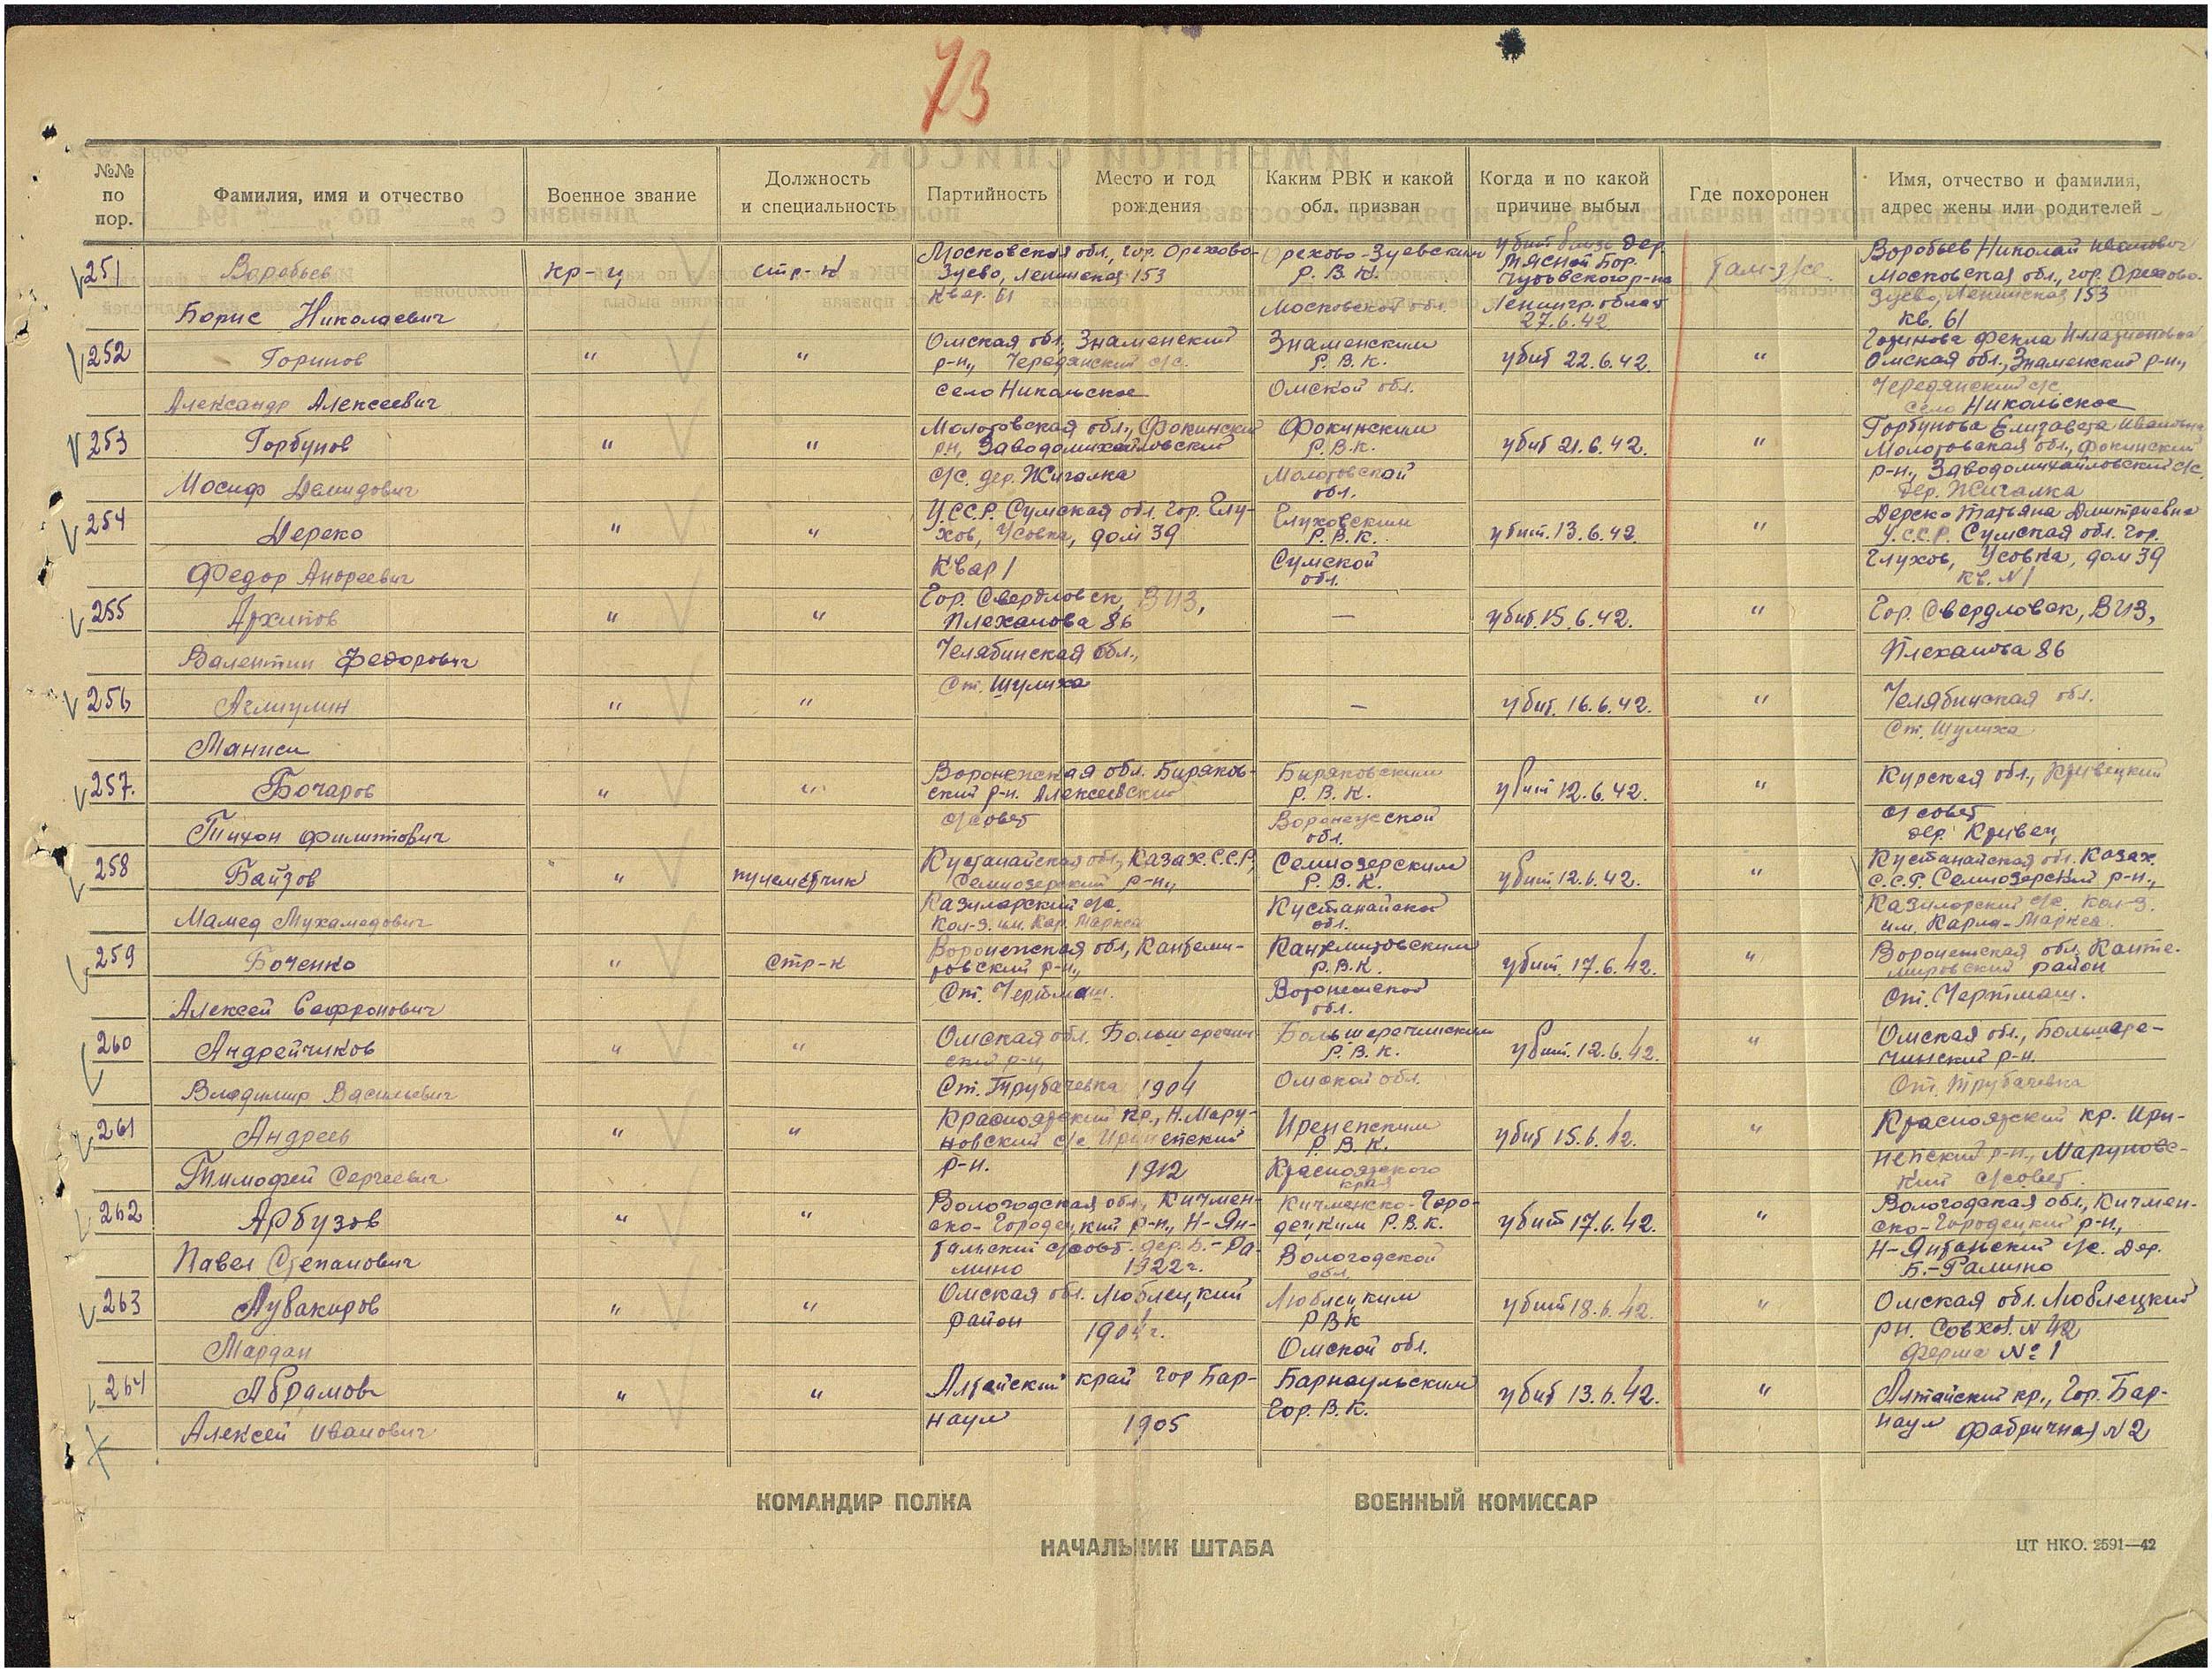 73
№№ по пор.
Фамилия, имя и отчество
Военное звание
Должность и специальность
Партийность
Место и год рождения
Каким РВК и какой обл. призван
Когда и по какой причине выбыл
Где похоронен
Имя, отчество и фамилия, адрес жены или родителей
251
Воробьев
Борис Николаевич
кр-ц
стр-к
Московская обл., гор. Орехово-
Зуево, Ленинская 153
Квар. 61
Орехово-Зуевским
Р.В.К.
Московской обл.
убит близ дер.
Мясной Бор.
Чудовского р-на
Ленингр. област
27.6.42
там-же
Воробьев Николай Иванович
Московская обл., гор. Орехово-
Зуево, Ленинская 153
кв. 61
252
Горинов
Александр Алексеевич
"
"
Омская обл. Знаменский
р-н, Чередянский с/с.
село Никольское
Знаменским
Р.В.К.
Омской обл.
убит 22.6.42.
"
Горинова Фекла
Омская обл., Знаменский р-н,
Чередянский с/с
село Никольское
253
Горбунов
Иосиф Демидович
"
"
Молотовская обл., Фокинский
рн, Заводомихайловский
с/с. дер. Жигалка
Фокинским
Р.В.К.
Молотовской
обл.
убит 21.6.42.
"
Горбунова Елизавета Ивановна
Молотовская обл., Фокинский
р-н., Заводомихайловский с/с.
дер. Жигалка
254
Дереко
Федор Андреевич
"
"
У.С.С.Р. Сумская обл. Гор. Глу-
хов, Усовка, дом 39
Квар 1
Глуховским
Р.В.К.
Сумской
обл.
убит. 13.6.42.
"
Дереко Татьяна Дмитриевна
У.С.С.Р. Сумская обл. Гор.
Глухов, Усовка, дом 39
кв. N1
255
Архипов
Валентин Федорович
"
"
Гор. Свердловск, ВИЗ,
Плеханова 86
—
убит. 15.6.42.
"
Гор. Свердловск, ВИЗ,
Плеханова 86
256
Аглиулин
"
"
Челябинская обл.,
Ст. Шумиха
—
убит. 16.6.42.
"
Челябинская обл.
Ст. Шумиха
257.
Бочаров
Тихон Филиппович
"
"
Воронежская обл. Биряков-
ский р-н. Алексеевский
с/совет
Биряковским
Р.В.К.
Воронежской
обл.
убит 12.6.42.
"
Курская обл., Кривецкий
с/совет
дер. Кривец
258
Баизов
Мамед Мухамедович
"
пулеметчик
Кустанайская обл, Казах.С.С.Р,
Семиозерский р-н,
Казиларский с/с.
Кол-з. им. Кар. Маркса
Семиозерским
Р.В.К.
Кустанайской
обл.
убит 12.6.42.
"
Кустанайская обл. Казах.
С.С.Р. Семиозерский р-н.,
Казиларский с/с. Кол-з.
им. Карла-Маркса.
259
Боченко
Алексей Сафронович
"
Стр-к
Воронежская обл, Кантеми-
ровский р-н,
Ст. Чертмаш.
Кантемировским
Р.В.К.
Воронежской
обл.
убит. 17.6.42.
"
Воронежская обл. Канте-
мировский район
Ст. Чертмаш.
260
Андрейчиков
Владимир Васильевич
"
"
Омская обл. Большеречин-
ский р-н,
Ст. Трубачевка 1904
Большеречинским
Р.В.К.
Омской обл.
убит. 12.6.42.
"
Омская обл., Большере-
чинский р-н.
Ст. Трубачевка
261
Андреев
Тимофей Сергеевич
"
"
Красноярский кр., Н. Мару-
новский с/с
р-н. 1912
Р.В.К.
Красноярского
края
убит 15.6.42.
"
Красноярский кр. Ири-
непский р-н., Маруновс-
кий с/совет.
262
Арбузов
Павел Степанович
"
"
Вологодская обл, Кичмен-
ско-Городецкий р-н, Н-Ян-
гальский с/совт. дер. Б.-Ра-
мино 1922г.
Кичменско-Горо-
децким Р.В.К.
Вологодской
обл.
убит 17.6.42.
"
Вологодская обл., Кичмен-
ско-Городецкий р-н,
Н-Янгальский с/с. Дер.
Б.-Рамино
263
Аубакиров
Мардан
"
"
Омская обл. Люблецкий
район 1904г.
Люблецким
РВК
Омской обл.
убит 18.6.42
"
Омская обл. Люблецкий
рн. Совхоз. N 42
ферма № 1
264
Абрамов
Алексей Иванович
"
"
Алтайский край гор Бар-
наул 1905
Барнаульским
Гор. В.К.
убит 13.6.42.
"
Алтайский кр., Гор. Бар-
наул Фабричная N 2
КОМАНДИР ПОЛКА
ВОЕННЫЙ КОМИССАР
НАЧАЛЬНИК ШТАБА
ЦТ НКО. 2591—42